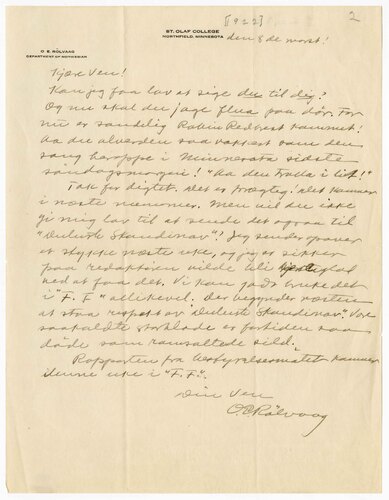 [1922]
2
ST. OLAF COLLEGE
NORTHFIELD, MINNESOTA
O. E. RÖLVAAG
DEPARTMENT OF NORWEGIAN
den 8de
Kjære Ven!
Kan jeg faa lov at sige du til dig?
Og nu skal du jage flua paa dør. For
nu er sandelig Robin Redbrest kommet!
Aa du alverden saa vakkert som den
sang heroppe i Minnesota sidste
søndagsmorgen! "Aa den Fryda i lief!"
Tak for digtet. Det er kræftig! Det kommer
i næste nummer. Men vil du ikke
gi mig lov til at sende det ogsaa til
"Duluth Skandinav"? Jeg sender
et stykke næste uke, og jeg er sikker
paa redaktøren vilde bli glad
ved at faa det. Vi kan godt bruke det
i "F. F." allikevel. Der begynder næsten
at staa respekt av "Duluth Skandinav." Vore
saakaldte storblade er fortiden saa
døde som ramsaltede sild.
Rapporten fra bestyrelsesmøtet kommer
i denne uke i "F.F.".
Din Ven
O.E. Rölvaag